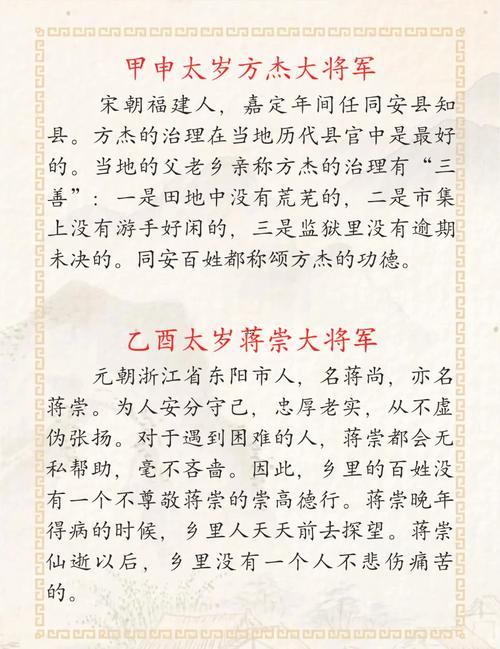 甲申太岁方杰大将军
宋朝福建人，嘉定年间任同安县知
县。方杰的治理在当地历代县官中是最好
的。当地的父老乡亲称方杰的治理有“三
善”：一是田地中没有荒芜的，二是市集
上没有游手好闲的，三是监狱里没有逾期
未决的。同安百姓都称颂方杰的功德。
乙酉太岁蒋崇大将军
元朝浙江省东阳市人，名蒋尚，亦名
蒋崇。为人安分守己，忠厚老实，从不虚
伪张扬。对于遇到困难的人，蒋崇都会无
私帮助，毫不吝啬。因此，乡里的百姓没
有一个不尊敬蒋崇的崇高德行。蒋崇晚年
得病的时候，乡里人天天前去探望。蒋崇
仙逝以后，乡里没有一个人不悲伤痛苦
的。